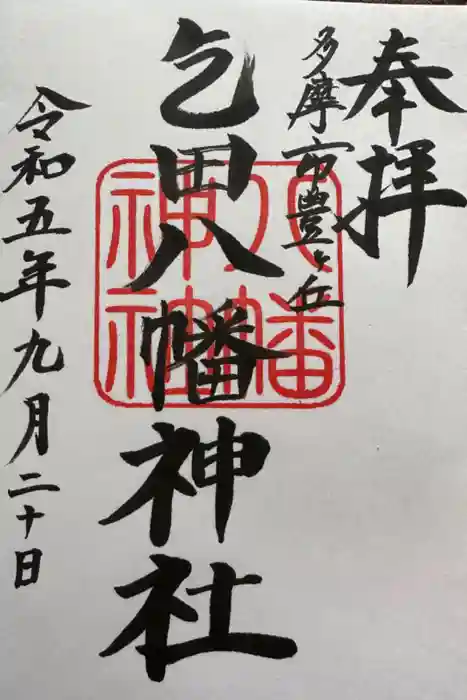 奉拝
多摩市豊ヶ丘
乞田八幡神社
八幡神社
令和五年九月二十日